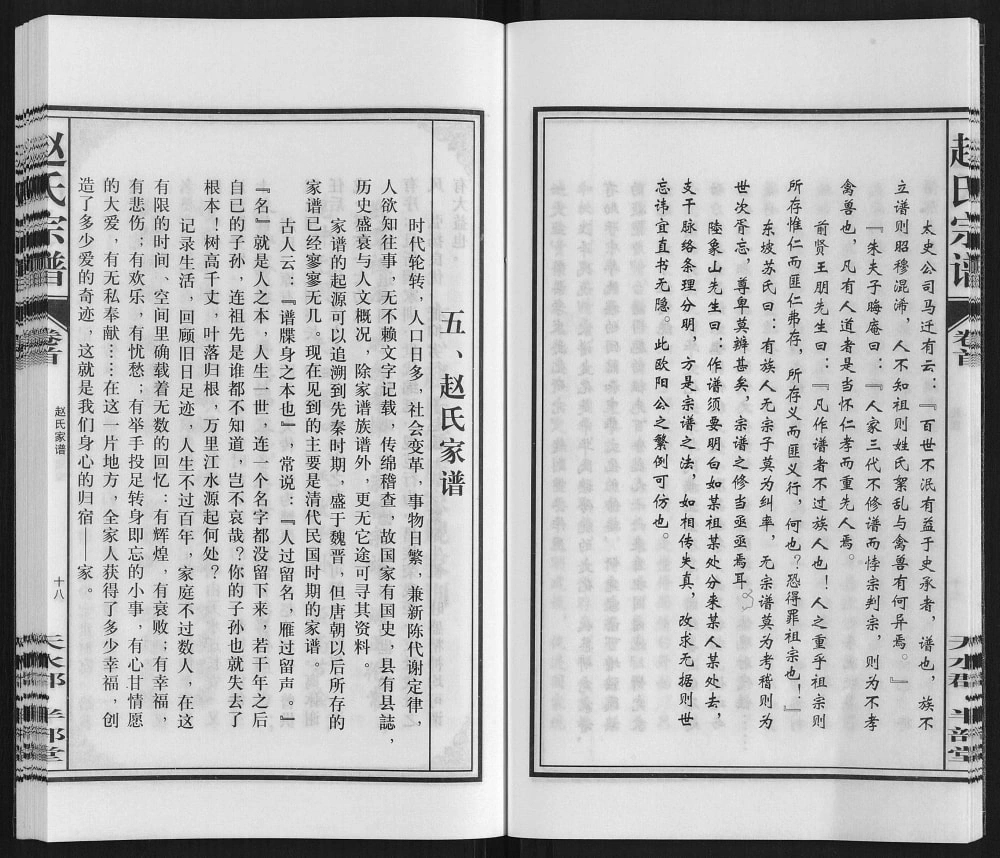 赵氏宗谱
卷首
天水郡 半部堂
太史公司马迁有云：『百世不泯有益于史承者，谱也，族不
立谱则昭穆混淆，人不知祖则姓氏絮乱与禽兽有何异焉。』
『朱夫子晦庵曰：『人家三代不修谱而悖宗判宗，则为不孝
禽兽也，凡有人道者是当怀仁孝而重先人焉。
前贤王朋先生曰：『凡作谱者不过族人也！人之重乎祖宗则
所存惟仁而匪仁弗存，所存义而匪义行，何也？恐得罪祖宗也！』
东坡苏氏曰：有族人无宗子莫为纠率，无宗谱莫为考稽则为
世次胥忘，尊卑莫辨甚矣，宗谱之修当亟亟焉耳。
陆象山先生曰：作谱须要明白如某祖某处分来某人某处去，
支干脉络条理分明，方是宗谱之法，如相传失真，改求无据则世
忘讳宜直书无隐。此欧阳公之繁例可仿也。
五、赵氏家谱
时代轮转，人口日多，社会变革，事物日繁，兼新陈代谢定律，
人欲知往事，无不赖文字记载，传绵稽查，故国家有国史，县有县誌，
历史盛衰与人文概况，除家谱族谱外，更无它途可寻其资料。
家谱的起源可以追溯到先秦时期，盛于魏晋，但唐朝以后所存的
家谱已经寥寥无几。现在见到的主要是清代民国时期的家谱。
古人云：『谱牒身之本也』，常说：『人过留名，雁过留声。』
『名』就是人之本，人生一世，连一个名字都没留下来，若干年之后
自己的子孙，连祖先是谁都不知道，岂不哀哉？你的子孙也就失去了
根本！树高千丈，叶落归根，万里江水源起何处？
记录生活，回顾旧日足迹，人生不过百年，家庭不过数人，在这
有限的时间、空间里确载着无数的回忆：有辉煌，有衰败；有幸福，
有悲伤；有欢乐，有忧愁；有举手投足转身即忘的小事，有心甘情愿
的大爱，有无私奉献……在这一片地方，全家人获得了多少幸福，创
造了多少爱的奇迹，这就是我们身心的归宿——家。
赵氏宗谱
卷首
赵氏家谱
十八
天水郡 半部堂